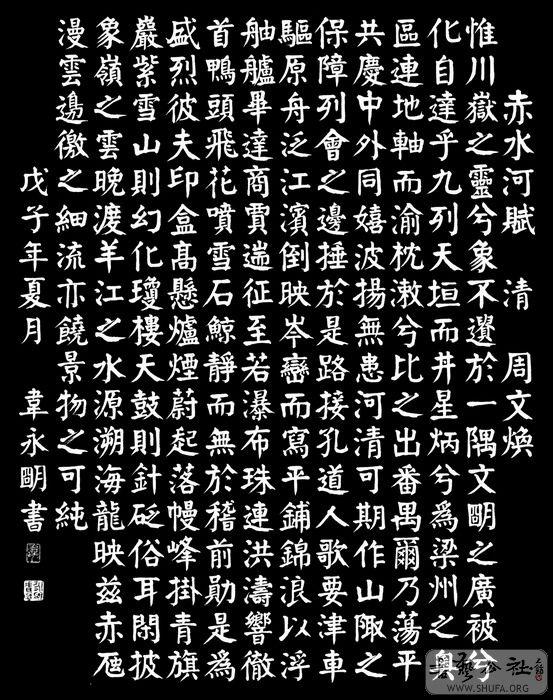 赤水河賦　清　周文煥
惟川嶽之靈兮象不選於一隅文明之廣被兮
化自達乎九列天垣而井星炳兮為梁州之奧
區連地軸而渝枕漱兮比之出番禺爾乃蕩平
共慶中外同嬉波揚無患河清可期作山陬之
保障列會之邊捶於是路接孔道人歌要津車
驅原舟泛江濱倒映岑巒而寫平鋪錦浪以浮
舳艫畢達商賈遄征至若瀑布珠連洪濤響徹
首鴨頭飛花噴雪石鯨靜而無於稽前勛是為
盛烈彼夫印盒高懸爐煙蔚起落幔峰掛青旗
嚴紫雪山則幻化瓊樓天鼓則針砭俗耳閑披
象嶺之雲晚渡羊江之水源溯海龍映茲赤虺
漫雲邊徼之細流亦饒景物之可純
戊子年夏月　韋永明書
書藝公社
WWW.SHUFA.ORG